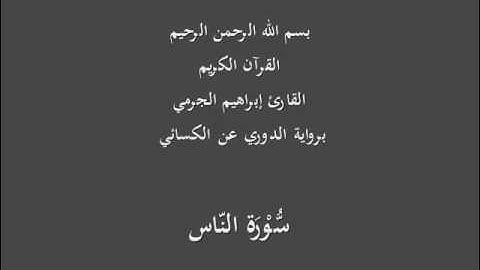 بسم الله الرحمن الرحيم
القرآن الكريم
القارئ إبراهيم الجرمي
برواية الدوري عن الكسائي
سُّوْرَة النّاس